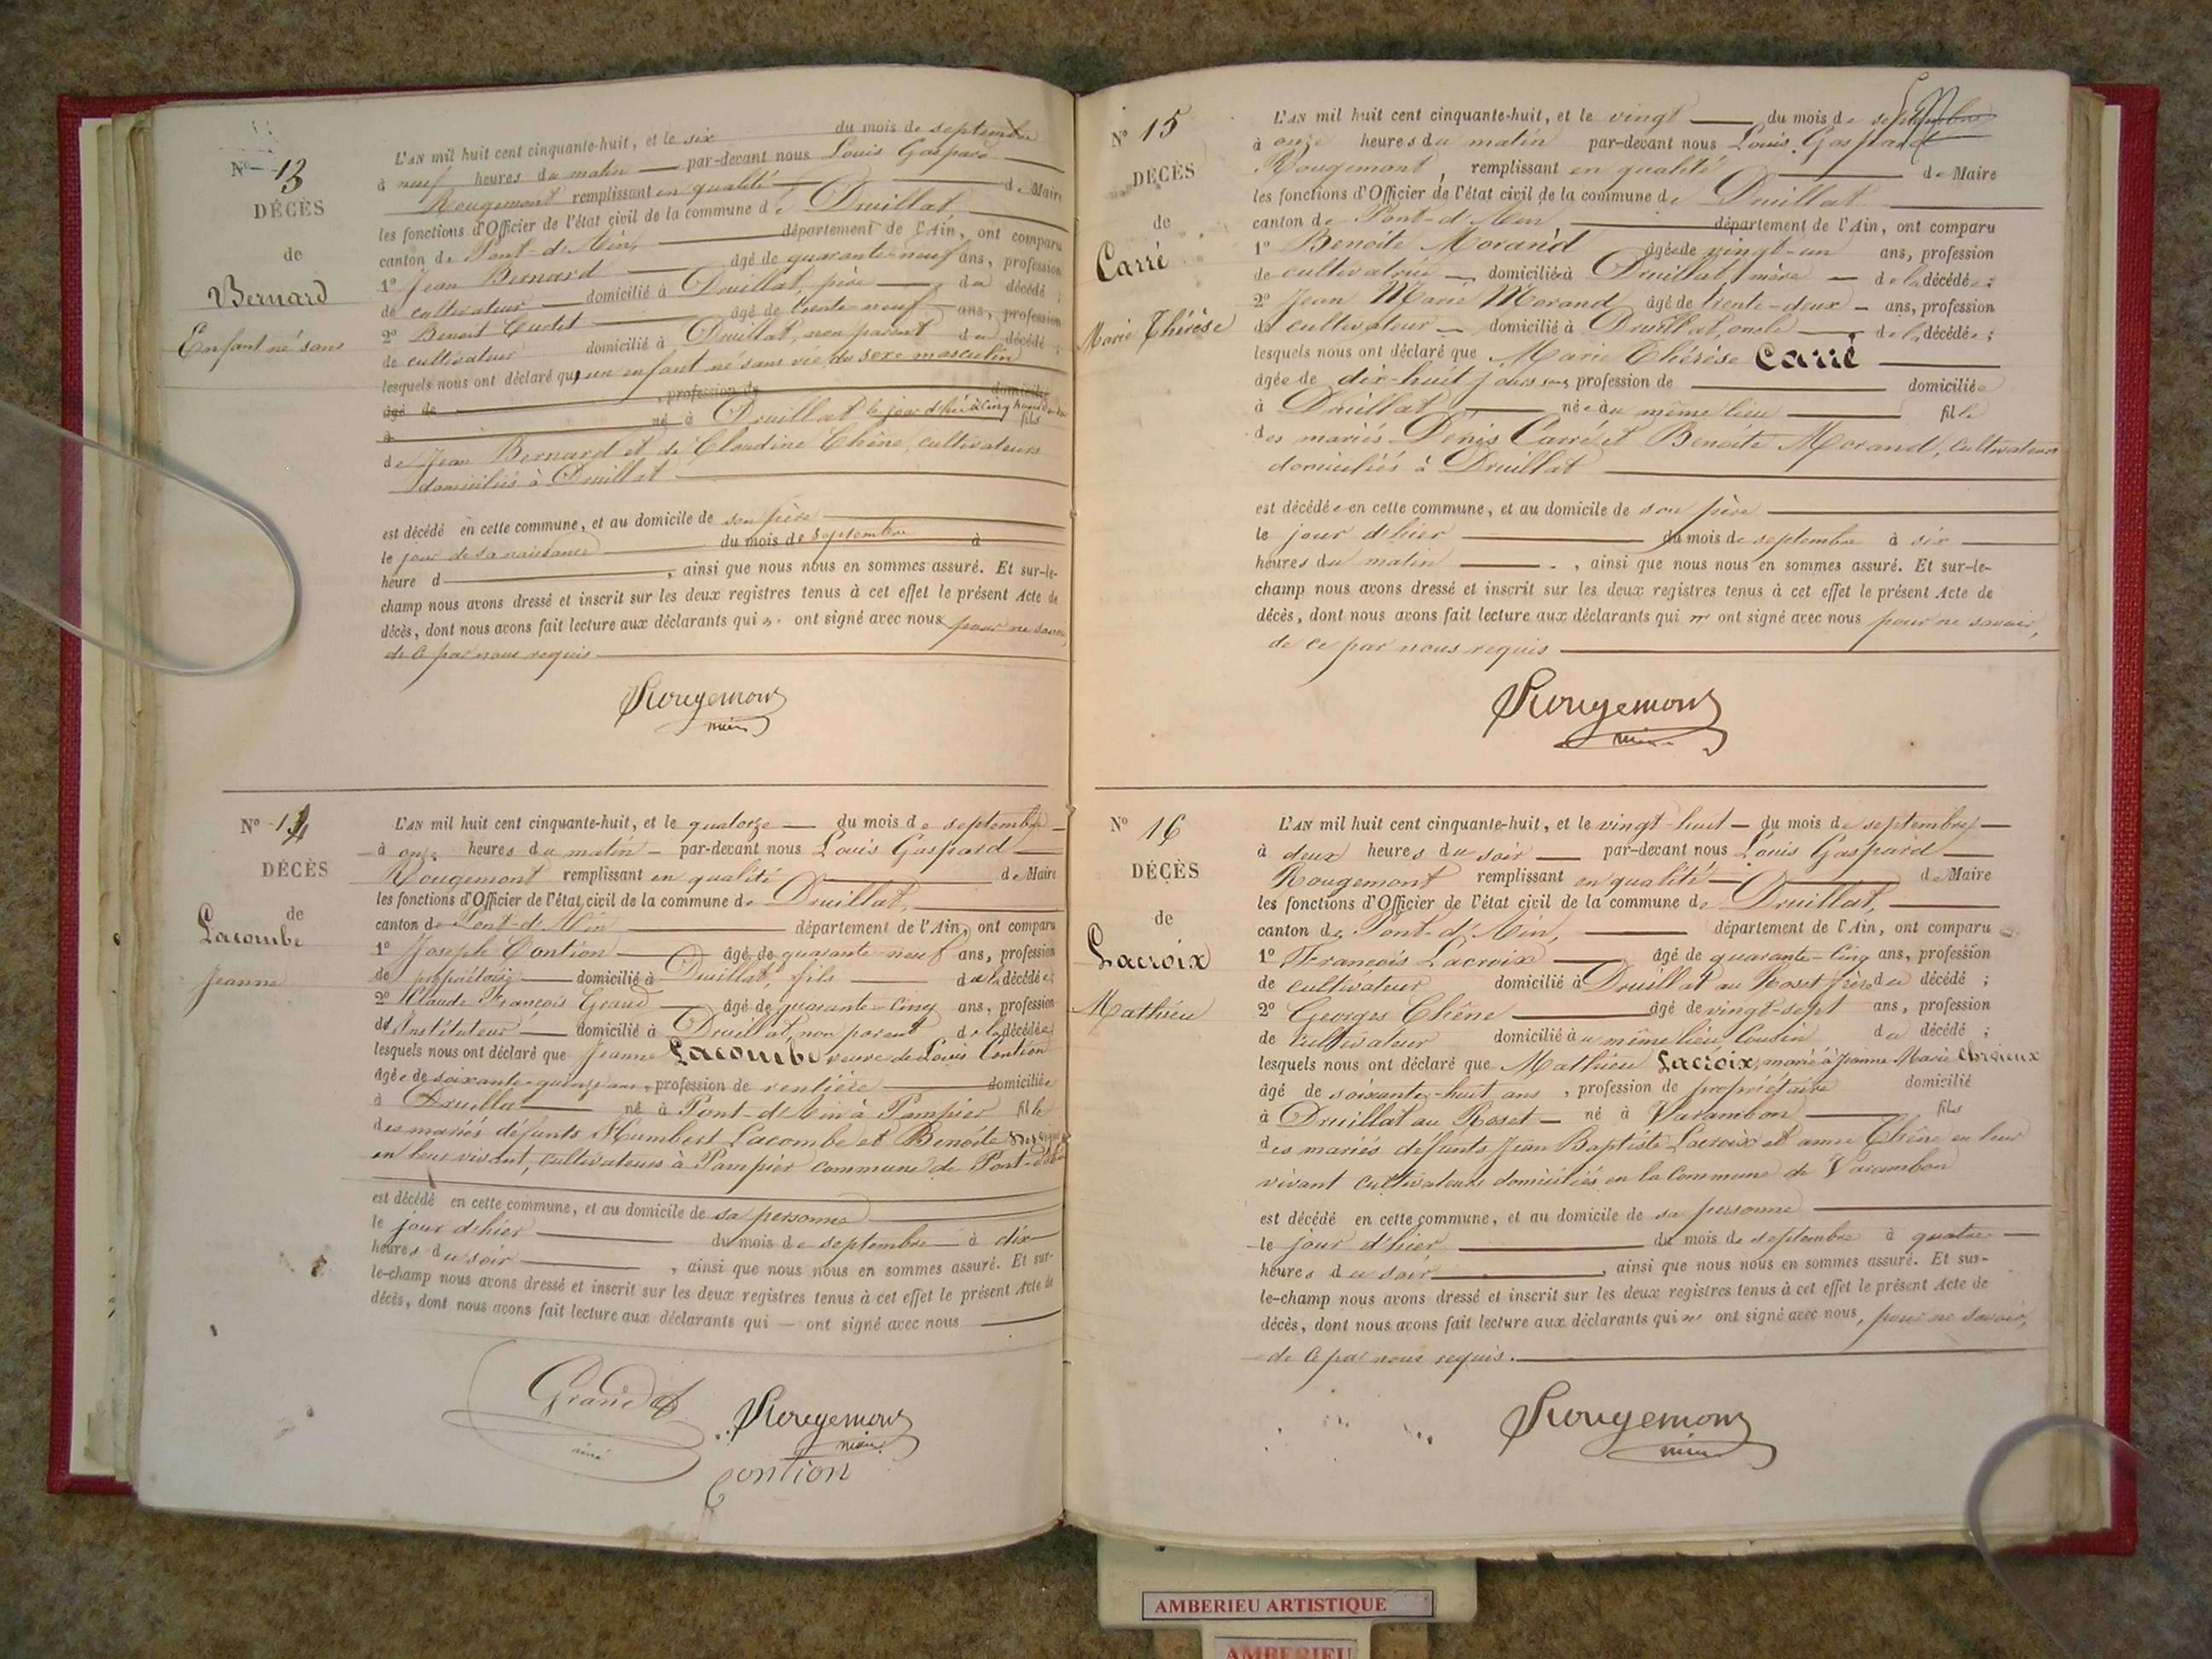 N° 13
DÉCÈS
de
Bernard
Enfant né sans
L'AN mil huit cent cinquante-huit, et le six du mois de septembre
à neuf heures du matin par-devant nous Louis Gaspard
Rougemont remplissant en qualité de Maire
les fonctions d'Officier de l'état civil de la commune de Druillat,
canton de Pont-d'Ain, département de l'Ain, ont comparu
1° Jean Bernard âgé de quarante-neuf ans, profession
de cultivateur domicilié à Druillat, père du décédé ;
2° Benoit Cudet âgé de trente-neuf ans, profession
de cultivateur domicilié à Druillat, non parent du décédé ;
lesquels nous ont déclaré qu'un enfant né sans vie du sexe masculin
âgé de , profession de domicilié
à né à Druillat le jour d'hier à cinq heures fils
de Jean Bernard et de Claudine Chêne, cultivateurs
domiciliés à Druillat
est décédé en cette commune, et au domicile de son père
le jour de sa naissance du mois de septembre à
heure d , ainsi que nous nous en sommes assuré. Et sur-le-
champ nous avons dressé et inscrit sur les deux registres tenus à cet effet le présent Acte de
décès, dont nous avons fait lecture aux déclarants qui n' ont signé avec nous pour ne savoir
de ce par nous requis
Rougemont
maire
N° 14
DÉCÈS
de
Lacombe
Jeanne
L'AN mil huit cent cinquante-huit, et le quatorze du mois de septembre
à onze heures du matin par-devant nous Louis Gaspard
Rougemont remplissant en qualité de Maire
les fonctions d'Officier de l'état civil de la commune de Druillat,
canton de Pont-d'Ain département de l'Ain, ont comparu
1° Joseph Contion âgé de quarante-neuf ans, profession
de propriétaire domicilié à Druillat, fils de la décédée ;
2° Claude François Grand âgé de quarante-cinq ans, profession
d'Instituteur domicilié à Druillat, non parent de la décédée ;
lesquels nous ont déclaré que Jeanne Lacombe veuve de Louis Contion
âgée de soixante-quinze ans, profession de rentière domiciliée
à Druillat né à Pont-d'Ain à Pampier fille
des mariés défunts Humbert Lacombe et Benoite
en leur vivant, cultivateurs à Pampier commune de Pont-d'Ain
est décédé en cette commune, et au domicile de sa personne
le jour d'hier du mois de septembre à dix
heures du soir , ainsi que nous nous en sommes assuré. Et sur-
le-champ nous avons dressé et inscrit sur les deux registres tenus à cet effet le présent Acte de
décès, dont nous avons fait lecture aux déclarants qui ont signé avec nous
Grand
ainé
Rougemont
maire
Contion
N° 15
DÉCÈS
de
Carré
Marie Thérèse
L'AN mil huit cent cinquante-huit, et le vingt du mois de septembre
à onze heures du matin par-devant nous Louis Gaspard
Rougemont, remplissant en qualité de Maire
les fonctions d'Officier de l'état civil de la commune de Druillat
canton de Pont-d'Ain département de l'Ain, ont comparu
1° Benoite Morand âgée de vingt-un ans, profession
de cultivatrice domiciliée à Druillat, mère de la décédée ;
2° Jean Marie Morand âgé de trente-deux ans, profession
de cultivateur domicilié à Druillat, oncle de la décédée ;
lesquels nous ont déclaré que Marie Thérèse Carré
âgée de dix-huit jours sans profession de domiciliée
à Druillat née au même lieu fille
des mariés Denis Carré et Benoite Morand, cultivateurs
domiciliés à Druillat
est décédée en cette commune, et au domicile de son père
le jour d'hier du mois de septembre à six
heures du matin , ainsi que nous nous en sommes assuré. Et sur-le-
champ nous avons dressé et inscrit sur les deux registres tenus à cet effet le présent Acte de
décès, dont nous avons fait lecture aux déclarants qui n' ont signé avec nous pour ne savoir,
de ce par nous requis
Rougemont
maire
N° 16
DÉCÈS
de
Lacroix
Mathieu
L'AN mil huit cent cinquante-huit, et le vingt-huit du mois de septembre
à deux heures du soir par-devant nous Louis Gaspard
Rougemont remplissant en qualité de Maire
les fonctions d'Officier de l'état civil de la commune de Druillat,
canton de Pont-d'Ain, département de l'Ain, ont comparu
1° François Lacroix âgé de quarante-cinq ans, profession
de cultivateur domicilié à Druillat au Roset frère du décédé ;
2° Georges Chêne âgé de vingt-sept ans, profession
de cultivateur domicilié au même lieu Cousin du décédé ;
lesquels nous ont déclaré que Mathieu Lacroix, marié à Jeanne Marie
âgé de soixante-huit ans, profession de propriétaire domicilié
à Druillat au Roset né à Varambon fils
des mariés défunts Jean Baptiste Lacroix et anne Chêne en leur
vivant cultivateurs domiciliés en la commune de Varambon
est décédé en cette commune, et au domicile de sa personne
le jour d'hier du mois de septembre à quatre
heures du soir , ainsi que nous nous en sommes assuré. Et sur-
le-champ nous avons dressé et inscrit sur les deux registres tenus à cet effet le présent Acte de
décès, dont nous avons fait lecture aux déclarants qui n' ont signé avec nous, pour ne savoir,
de ce par nous requis.
Rougemont
maire
AMBERIEU ARTISTIQUE
AMBERIEU